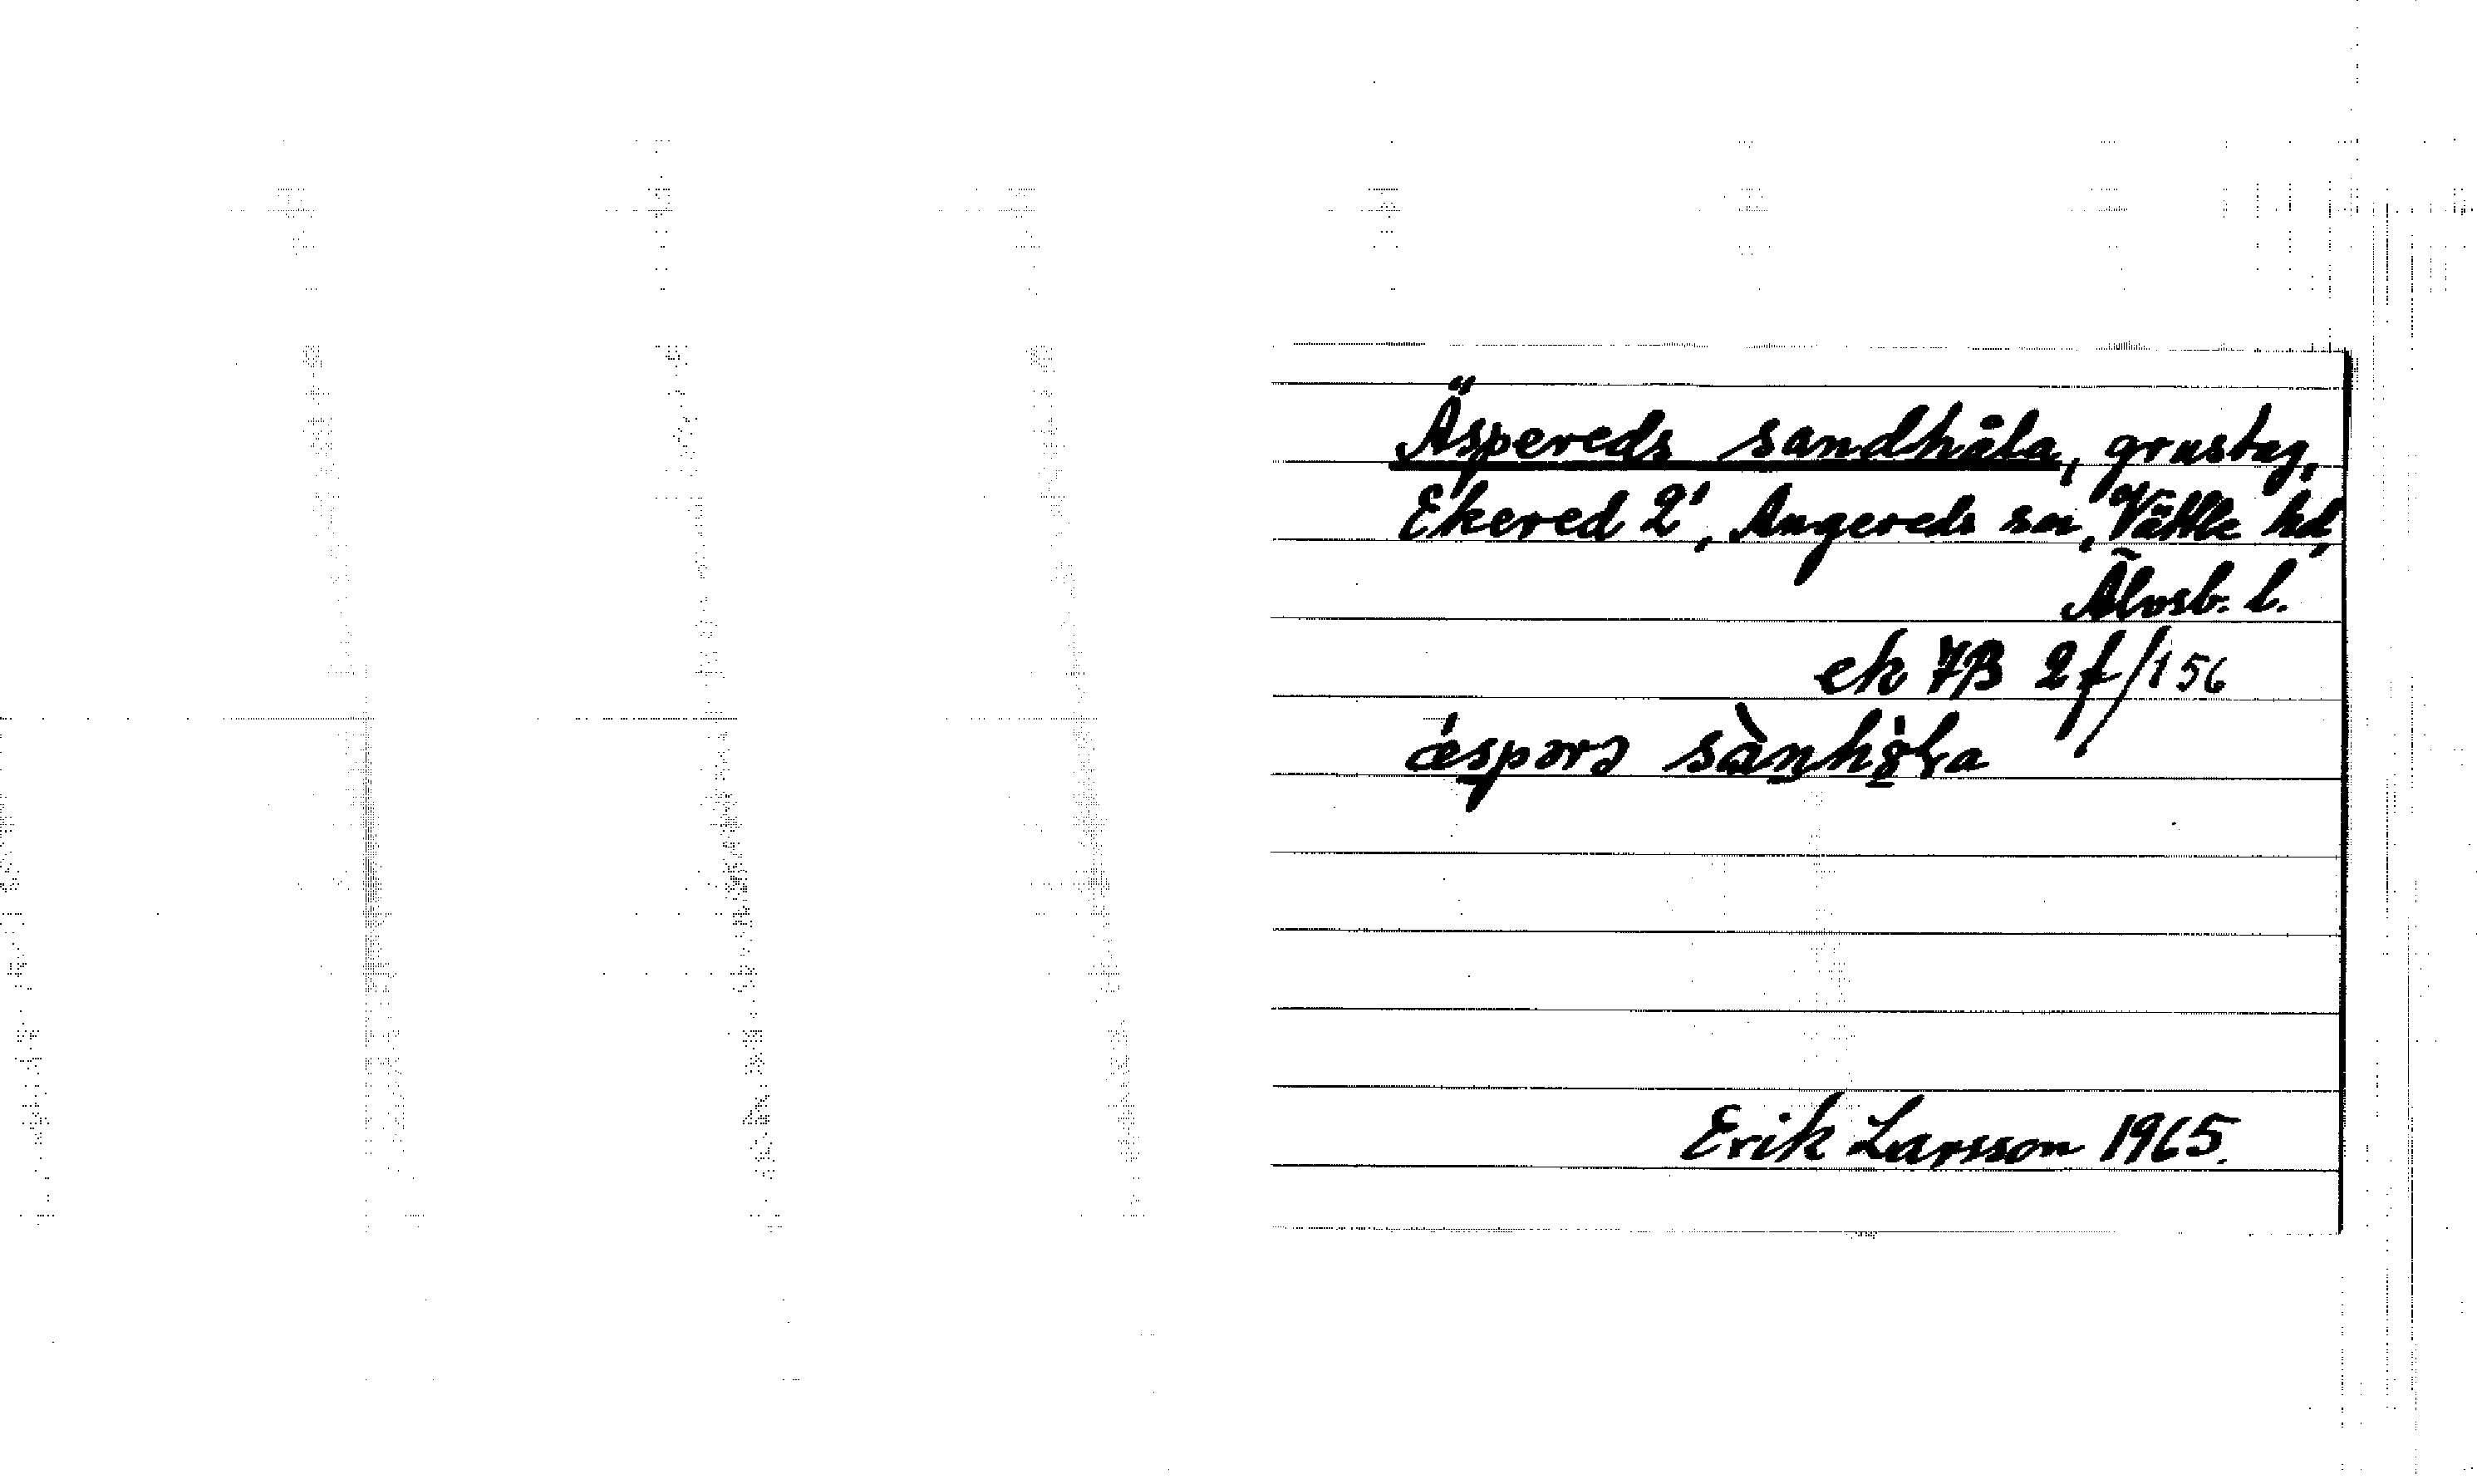 Äspereds sandhåla, grustag,
Ekered 2¹, Angereds sn, Vättle hd,
Älvsb. l.
ek 7B 2f/156
æspərə sàn
Erik Larsson 1965.